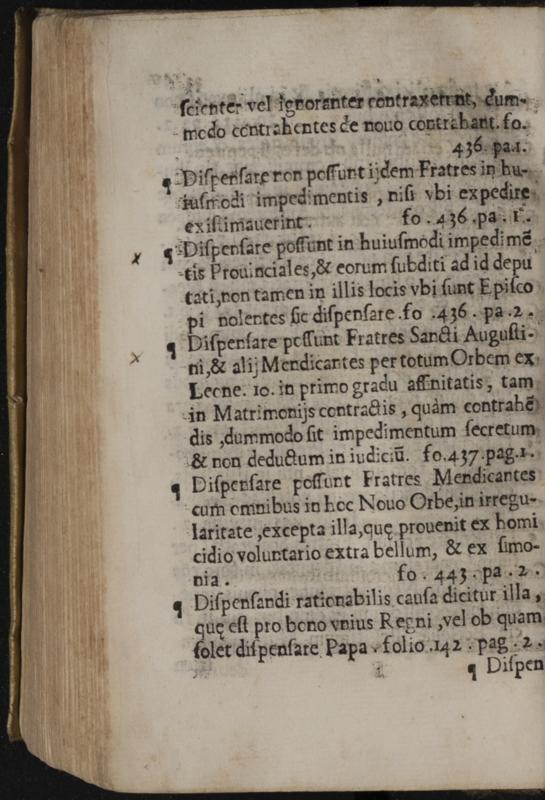 ſcienter vel ignoranter contraxerint, dum-
modo contrahentes de nouo contrahant. fo.
436. pa.1.
¶ Diſpenſare non poſſunt ijdem Fratres in hu-
iuſmodi impedimentis , niſi vbi expedire
exiſtimauerint. fo . 436 .pa . 1 .
x ¶ Diſpenſare poſſunt in huiuſmodi impedimẽ
tis Prouinciales,& eorum ſubditi ad id depu
tati,non tamen in illis locis vbi ſunt Epiſco
pi nolentes ſic diſpenſare .fo .436 . pa .2 .
x ¶ Diſpenſare poſſunt Fratres Sancti Auguſti-
ni,& alij Mendicantes per totum Orbem ex
Leone. 10. in primo gradu affinitatis , tam
in Matrimonijs contractis , quàm contrahẽ
dis ,dummodo ſit impedimentum ſecretum
& non deductum in iudiciũ. fo.437.pag.1.
¶ Diſpenſare poſſunt Fratres Mendicantes
cum omnibus in hoc Nouo Orbe,in irregu-
laritate ,excepta illa,quę prouenit ex homi
cidio voluntario extra bellum, & ex ſimo-
nia . fo . 443 . pa . 2 .
¶ Diſpenſandi rationabilis cauſa dicitur illa ,
quę eſt pro bono vnius Regni ,vel ob quam
ſolet diſpenſare Papa . folio .142 . pag . 2 .
¶ Diſpen